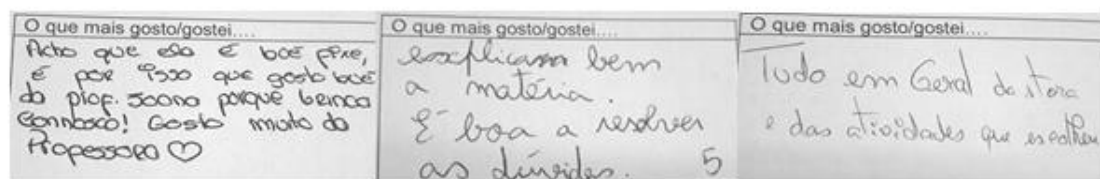 O que mais gosto/gostei....
Acho que ela é boé fixe,
é por isso que gosto boé
da prof. Joana porque brinca
connosco! Gosto muito da
Professora ♡
O que mais gosto/gostei....
explicam bem
a matéria.
É boa a resolver
as dúvidas. 5
O que mais gosto/gostei....
Tudo em Geral da stora
e das atividades que escolheu